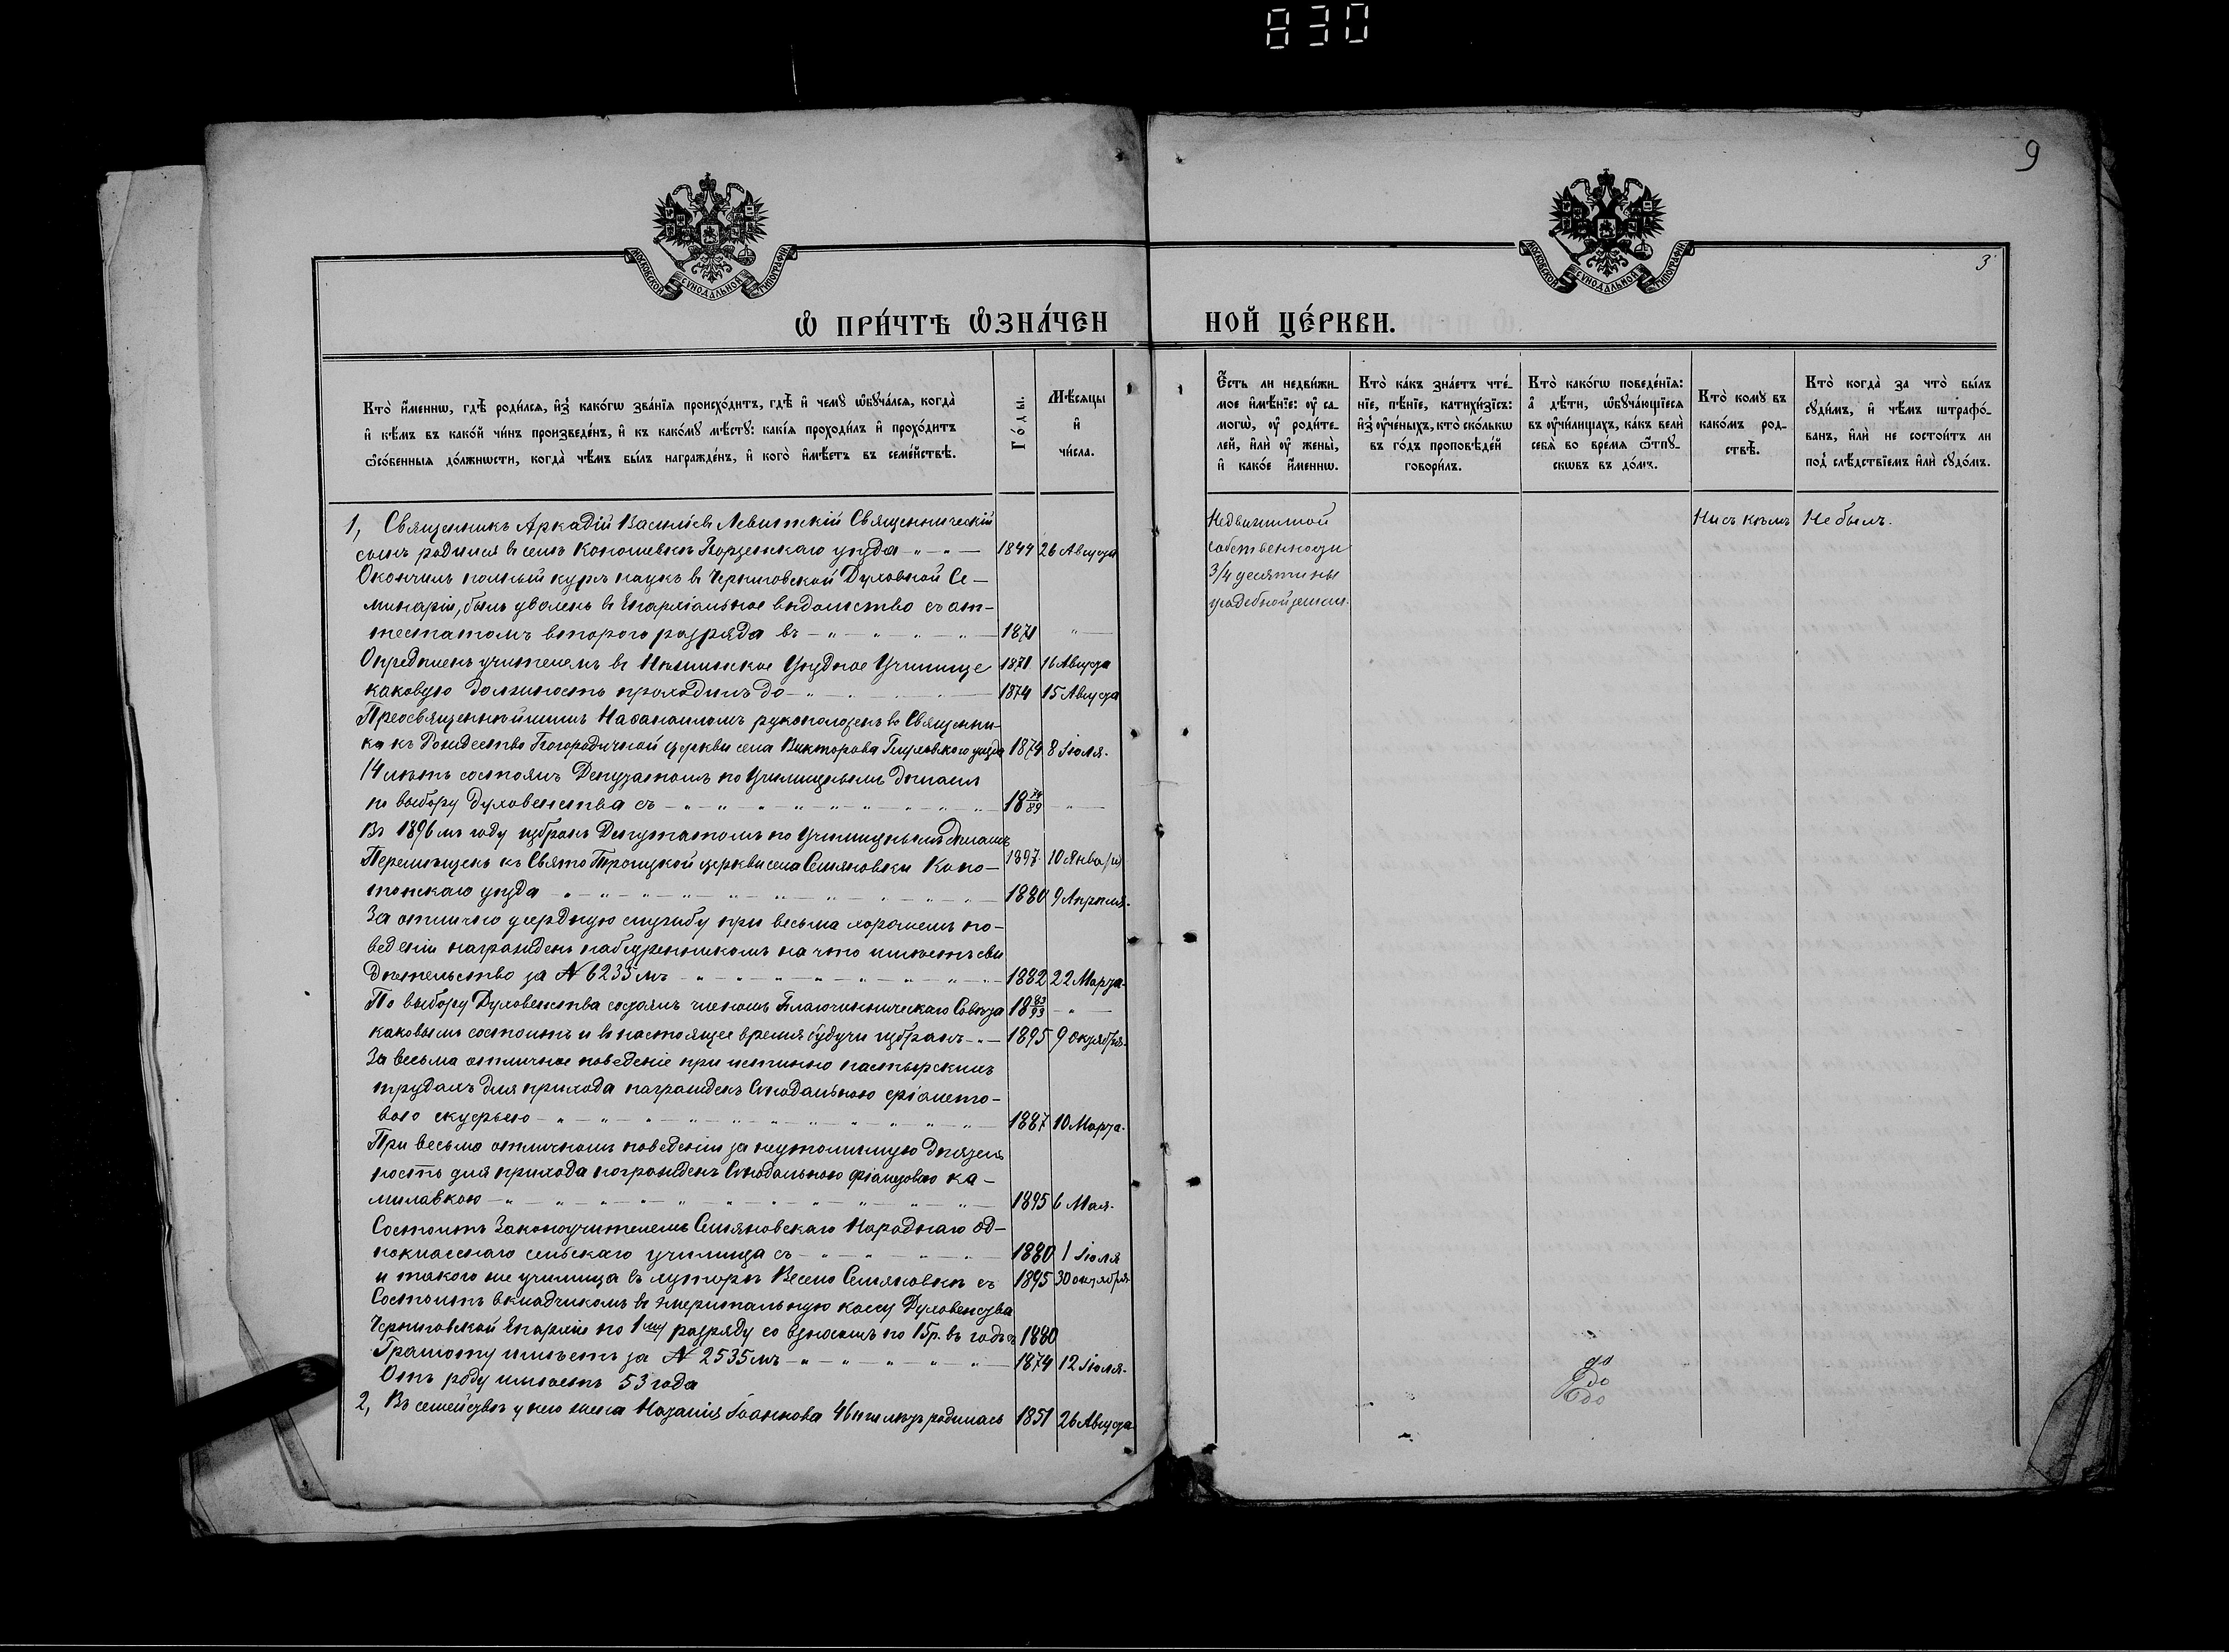 830
9
3
МОСКОВСКОЙ СѴНОДАЛЬНОЙ ТИПОГРАФІИ
МОСКОВСКОЙ СѴНОДАЛЬНОЙ ТИПОГРАФІИ
Ѽ ПРИ́ЧТѢ Ѽ҆ЗНА́ЧЕН НОЙ ЦЕ́РКВИ.
Кто̀ и҆́меннѡ, гдѣ̀ роди́лся, и҆з̾ како́гѡ зва́нїя происхо́дитъ, гдѣ̀ и҆ чемꙋ̀ ѡ҆бꙋча́лся, когда̀
и҆ кѣ́мъ въ како́й чи́нъ произведе́нъ, и҆ къ како́мꙋ мѣ́стꙋ: какі́я проходи́лъ и҆ прохо́дитъ
ѻ҆со́бенныя до́лжнѡсти, когда̀ чѣ́мъ бы́лъ награжде́нъ, и҆ кого̀ и҆мѣ́етъ въ семе́йствѣ.
Го́ды.
Мѣ́сяцы
и҆
чи́сла.
Е҆́сть ли недви́жи-
мое и҆мѣ́нїе: оу҆ са-
могѡ̀, оу҆ роди́те-
лей, и҆лѝ оу҆ жены̀,
и҆ како́е и҆́меннѡ.
Кто̀ ка́къ зна́етъ чте́-
нїе, пѣ́нїе, катихи́зїсъ:
и҆з̾ оу҆че́ныхъ, кто̀ ско́лькѡ
въ го́дъ проповѣ́дей
говори́лъ.
Кто̀ како́гѡ поведе́нїя:
а҆ дѣ́ти, ѡ҆бꙋча́ющїеся
въ оу҆чи́лищахъ, ка́къ велѝ
себѧ̀ во вре́мя ѿпꙋ-
скѡвъ въ до́мъ.
Кто̀ комꙋ̀ въ
како́мъ род-
ствѣ̀.
Кто̀ когда̀ за что̀ бы́лъ
сꙋди́мъ, и҆ чѣ́мъ штрафо́-
ванъ, и҆лѝ не состои́тъ ли
под̾ слѣ́дствїемъ и҆лѝ сꙋдо́мъ.
1, Священникъ Аркадій Васильевъ Левитскій Священническій
сынъ родился въ селѣ Коношевкѣ Борзенскаго уѣзда 1844 26 Августа
Окончилъ полный курсъ наукъ въ Черниговской Духовной Се-
минаріи, былъ уволенъ въ Епархіальное вѣдомство съ ат-
тестатомъ второго разряда въ 1871
Опредѣленъ учителемъ въ Нѣжинское Уѣздное Училище 1871. 16 Августа
каковую должность проходилъ до 1874 15 Августа
Преосвященнѣйшимъ Наѳанаиломъ рукоположенъ во Священни-
ка къ Рождество Богородичной церкви села Викторова Глуховского уѣзда 1874 8 Іюля.
14 лѣтъ состоялъ Депутатомъ по Училищнымъ дѣламъ
по выбору Духовенства съ 18 74/89
Въ 1896 мъ году избранъ Депутатомъ по Училищнымъ дѣламъ
1897. 10 Января
Перемѣщенъ къ Свято Троицкой церкви села Семяновки Коно-
топскаго уѣзда 1880 9 Апрѣля.
За отлично усердную службу при весьма хорошемъ по-
веденіи награжденъ набедренникомъ на что имѣетъ сви
дѣтельство за N 6235 мъ 1882 22 Марта.
По выбору Духовенства состоялъ членомъ Благочинническаго Совѣта 18 83/93
каковымъ состоитъ и въ настоящее время будучи избранъ 1895 9 Октября.
За весьма отличное поведеніе при истинно пастырскихъ
трудахъ для прихода награжденъ Сѵнодальною фіолето-
вою скуфьею 1887 10 Марта.
При весьма отличномъ поведеніи за неутомимую дѣятель
ность для прихода награжденъ Сѵнодальною фіолетовою ка-
милавкою 1895 6 Мая.
Состоитъ Законоучителемъ Семяновскаго Народнаго од-
нокласснаго сельскаго училища съ 1880 1 Іюля
и такого же училища въ хуторѣ Весело Семяновкѣ съ 1895 30 октября
Состоитъ вкладчикомъ въ эмеритальную кассу Духовенства
Черниговской Епархіи по 1 му разряду со взносомъ по 15р. въ годъ съ 1880
Грамоту имѣетъ за N 2535 мъ 1874 12 Іюля.
Отъ роду имѣетъ 53 года
2, Въ семействѣ у него жена Наталія Іоаннова 46ти лѣтъ родилась 1851 26 Августа
Недвижимой
собственности
3/4 десятины
усадебной земли.
Ни съ кѣмъ
Не былъ.
до
до